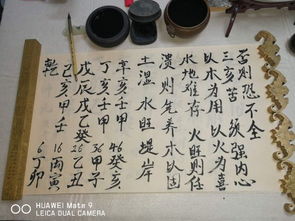 否则恐不全
三亥苦 须强内心
以木为用 以火为喜
水地难存 火旺则任
溃则先养木以固
土湿 水旺堤岸
辛亥壬甲 46癸亥
丁亥壬甲 36甲子
戊辰戊乙癸 26乙丑
己亥甲壬 16丙寅
乾 6丁卯
HUAWEI Mate 9
LEICA DUAL CAMERA